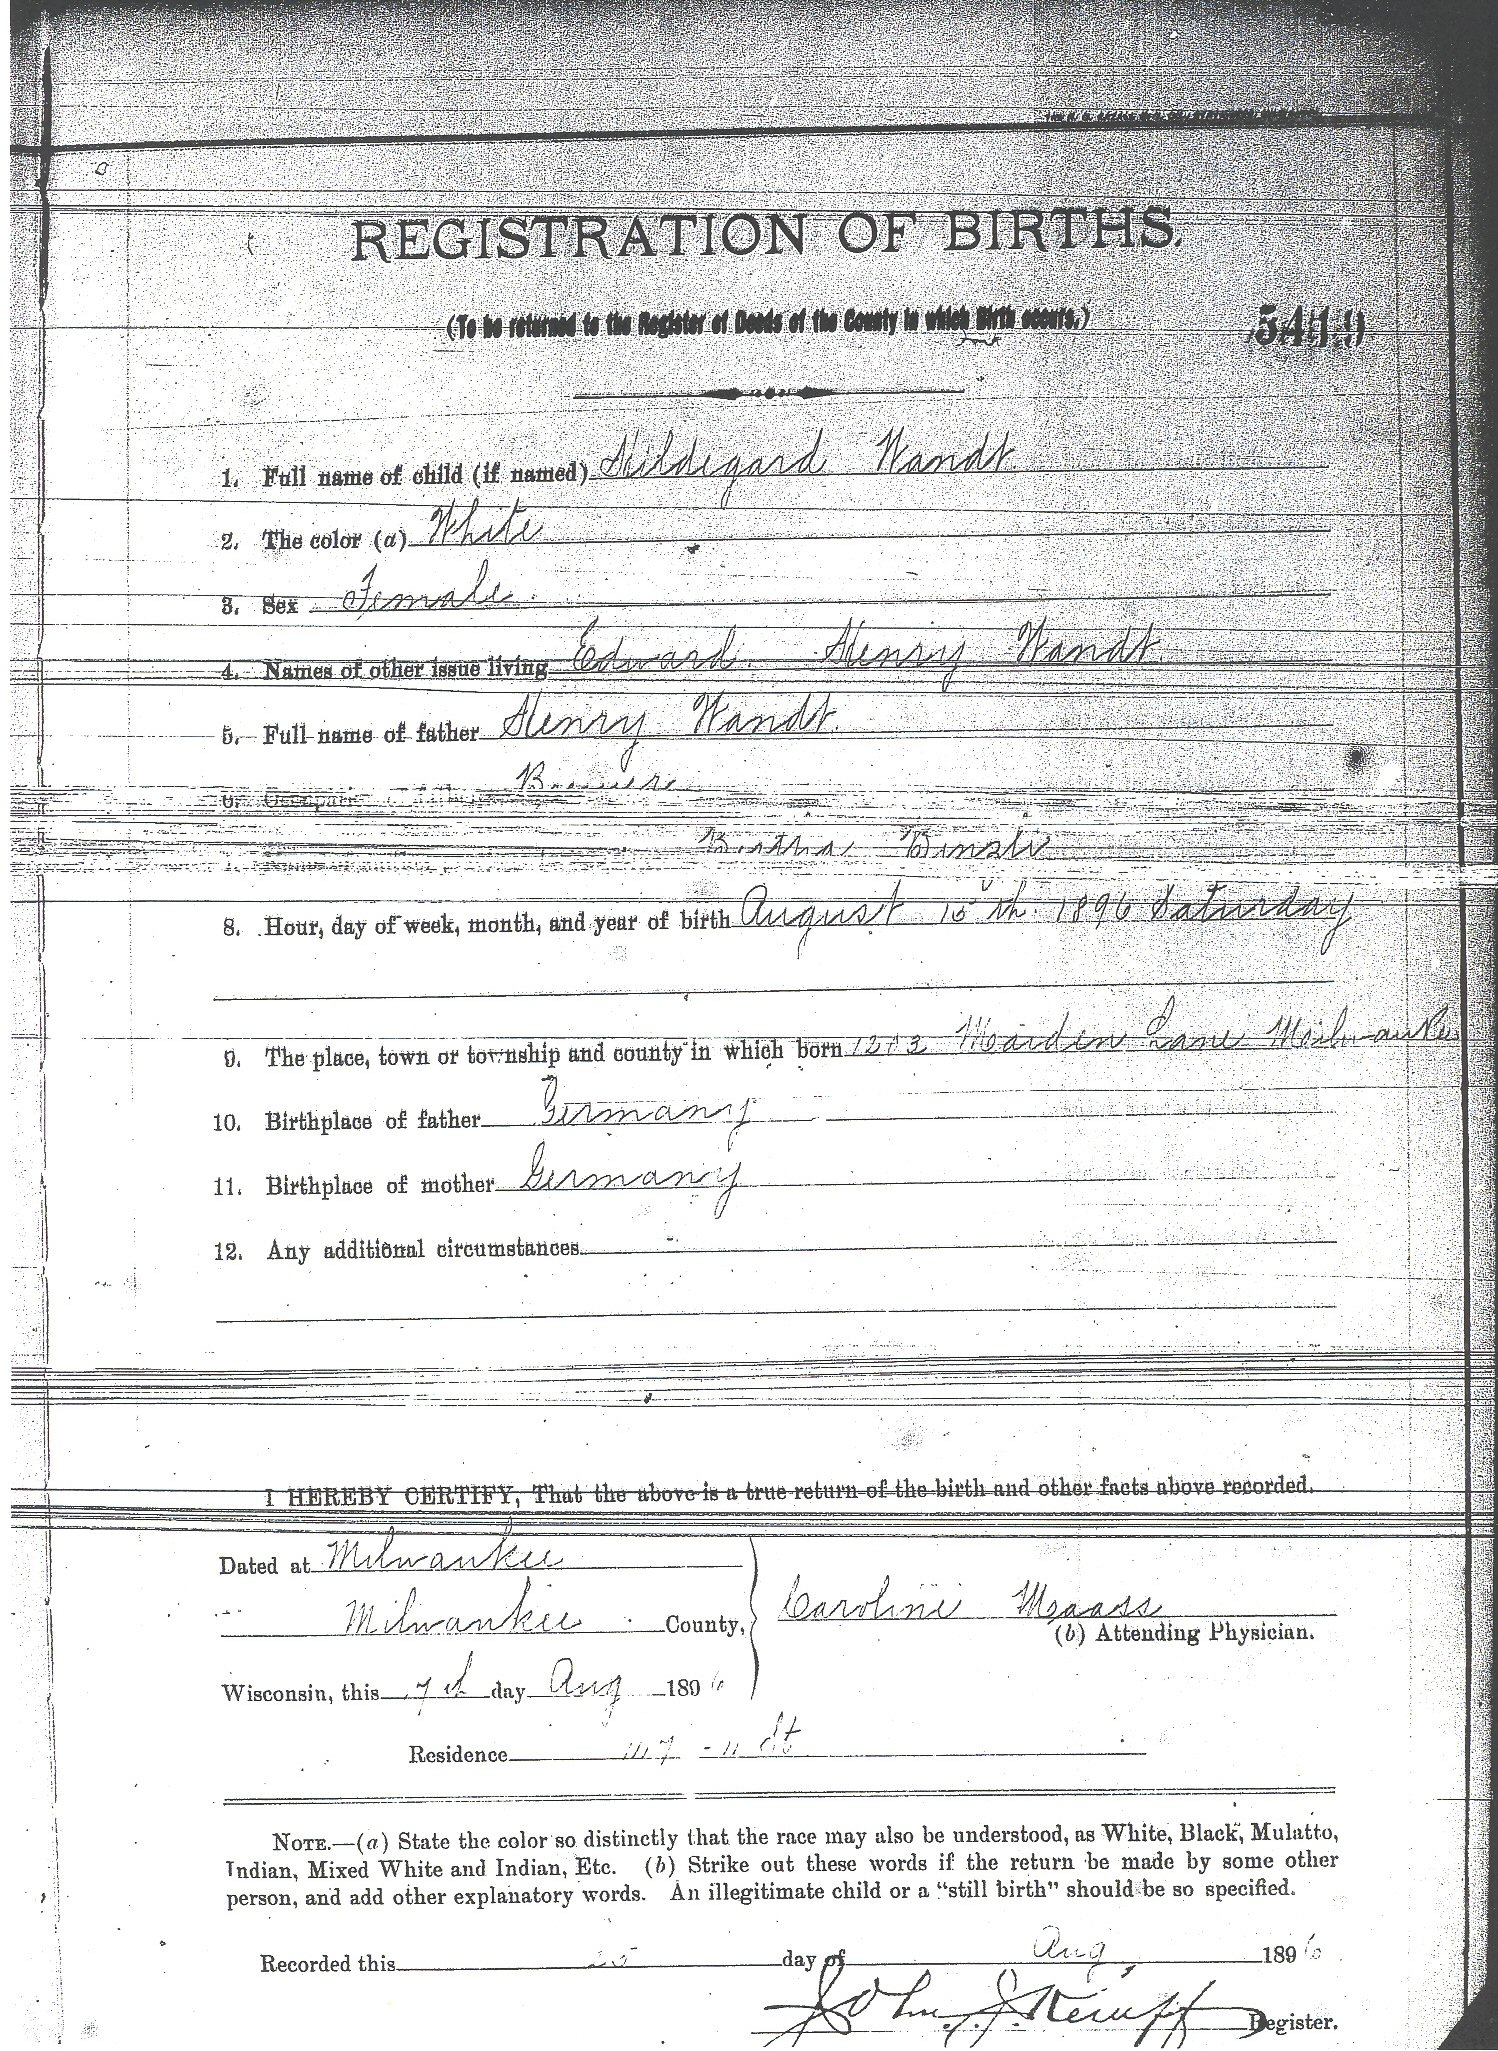 REGISTRATION OF BIRTHS.
(To be returned to the Register of Deeds of the County in which Birth occurs.)
1. Full name of child (if named) Hildegard Wandt
2. The color (a) White
3. Sex Female
4. Names of other issue living Edward Henry Wandt
5. Full name of father Henry Wandt
6.
8. Hour, day of week, month, and year of birth August 15th 1896 Saturday
9. The place, town or township and county in which born Maiden Lane Milwaukee
10. Birthplace of father Germany
11. Birthplace of mother Germany
12. Any additional circumstances
I HEREBY CERTIFY, That the above is a true return of the birth and other facts above recorded.
Dated at Milwaukee
Milwaukee County,
Caroline Maass
(b) Attending Physician.
Wisconsin, this day Aug 1896
Residence St
NOTE.—(a) State the color so distinctly that the race may also be understood, as White, Black, Mulatto,
Indian, Mixed White and Indian, Etc. (b) Strike out these words if the return be made by some other
person, and add other explanatory words. An illegitimate child or a "still birth" should be so specified.
Recorded this 25 day of Aug 1896
John Register.